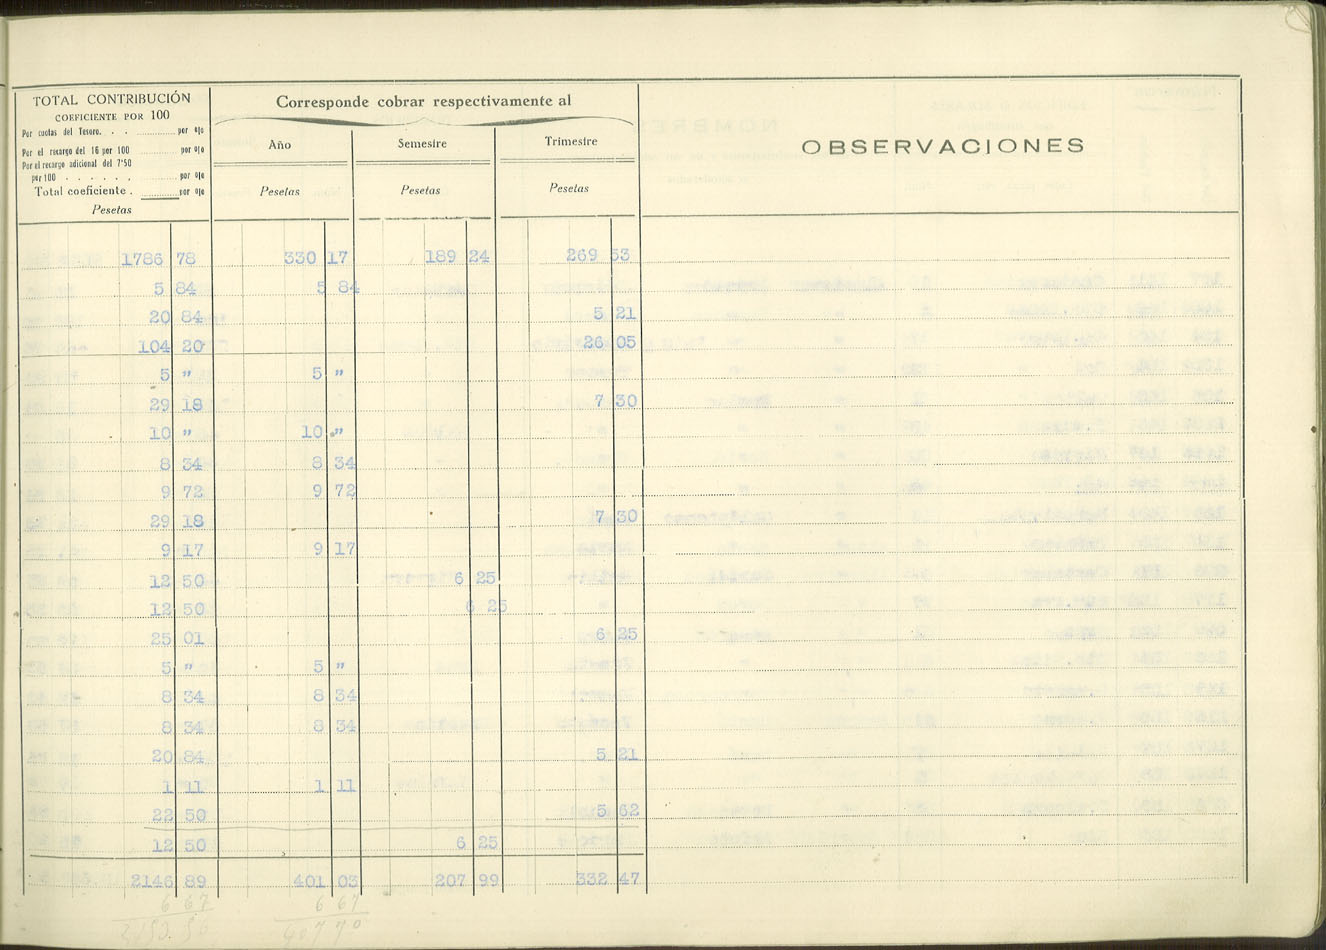 TOTAL CONTRIBUCIÓN
COEFICIENTE POR 100
Por cuotas del Tesoro. . . por %
Por el recargo del 16 por 100 por %
Por el recargo adicional del 7'50
por 100 . . . . . . por %
Total coeficiente . por %
Pesetas
Corresponde cobrar respectivamente al
Año Semestre Trimestre
Pesetas Pesetas Pesetas
OBSERVACIONES
1786 78 330 17 189 24 269 33
5 84 5 84
20 84 5 21
104 20 26 05
5 " 5 "
29 18 7 30
10 " 10 "
8 34 8 34
9 72 9 72
29 18 7 30
9 17 9 17
12 50 6 25
12 50 6 25
25 01 6 25
5 " 5 "
8 34 8 34
8 34 8 34
20 84 5 21
1 11 1 11
22 50 5 62
12 50 6 25
2146 89 401 03 207 99 332 47
6 67 6 67
407 70